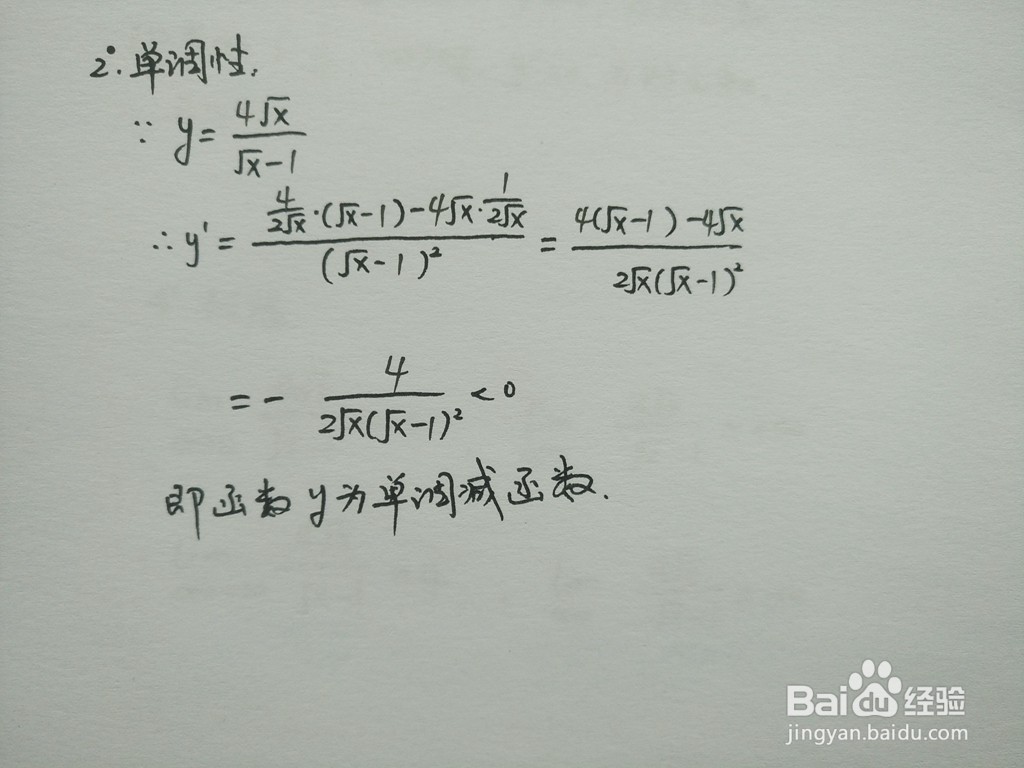 2°. 单调性.
∵ y = 4√x / (√x-1)
∴ y' = [4/(2√x)·(√x-1)-4√x·1/(2√x)] / (√x-1)² = [4(√x-1)-4√x] / [2√x(√x-1)²]
= - 4 / [2√x(√x-1)²] < 0
即函数y为单调减函数.
Baidu 经验
jingyan.baidu.com